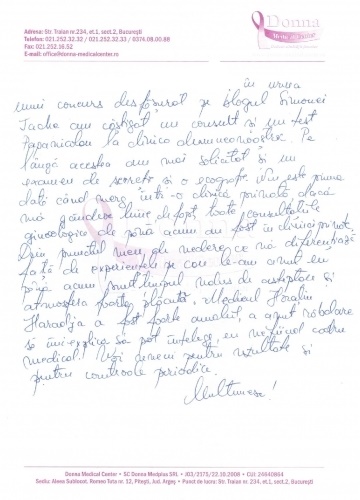 Adresa: Str. Traian nr.234, et.1, sect.2, București
Telefon: 021.252.32.32 / 021.252.32.33 / 0374.08.00.88
Fax: 021.252.16.52
E-mail: office@donna-medicalcenter.ro
Donna
Medical Center
în urma
unui concurs desfășurat pe blogul Simonei
Tache am câștigat un consult și un test
Papanicolau la clinica dumneavoastră. Pe
lângă acestea am mai solicitat și un
examen de secreție și o ecografie. Nu este prima
dată când merg într-o clinică privată dacă
mă gândesc bine, de fapt, toate consultațiile
ginecologice de până acum au fost în clinici private.
Din punctul meu de vedere ce mă diferențiază
față de experiențele pe care le-am avut eu
până acum timpul redus de așteptare și
atmosfera foarte plăcută. Medicul
a fost foarte amabil, a avut răbdare
să îmi explice să pot înțelege, eu nefiind cadru
medical! Voi reveni pentru rezultate și
pentru controale periodice.
Mulțumesc!
Donna Medical Center • SC Donna Medplus SRL • J03/2175/22.10.2008 • CUI: 24640864
Sediu: Aleea Sublocot. Romeo Tuta nr. 12, Pitești, Jud. Argeș • Punct de lucru: Str. Traian nr. 234, et.1, sect.2, București